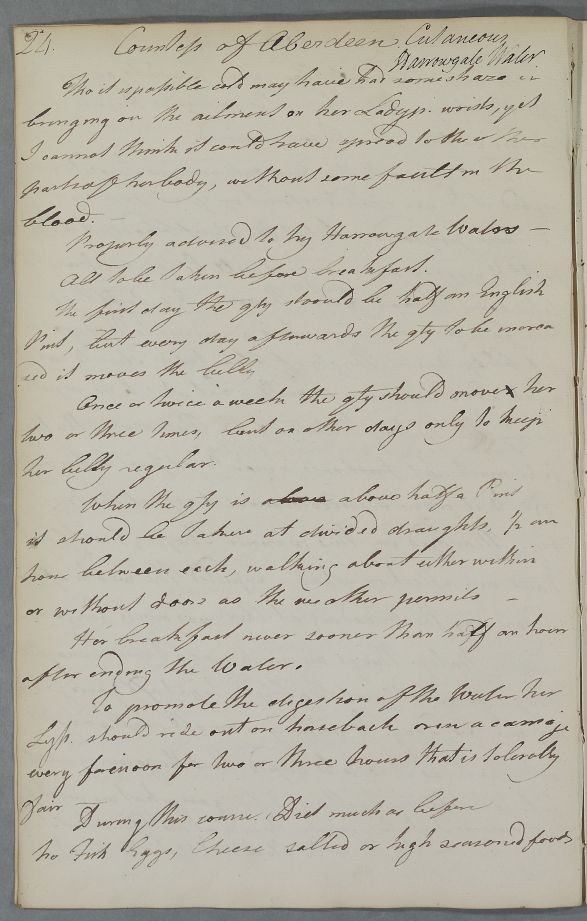 24. Countess of Aberdeen Cutaneous
Harrowgate Water
Tho it is possible cold may have had some share in
bringing on the ailment on her Ladyp. wrists, yet
I cannot think it could have spread to the other
parts of her body, without some fault in the
blood. —
Properly advised to try Harrowgate Water —
All to be taken before breakfast.
The first day the qty should be half an English
Pint, but every day afterwards the qty to be increa
sed it moves the belly
Once or twice a week the qty should move her
two or three times, but on other days only to keep
her belly regular.
When the qty is above above half a Pint
it should be taken at divided draughts, ½ an
hour between each, walking about either within
or without doors as the weather permits —
Her breakfast never sooner than half an hour
after ending the Water.
To promote the digestion of the Water her
Lyp. should ride out on horseback or in a carriage
every forenoon for two or three hours that is tolerably
fair
During this course. Diet much as before
no Fish Eggs, Cheese salted or high seasoned foods